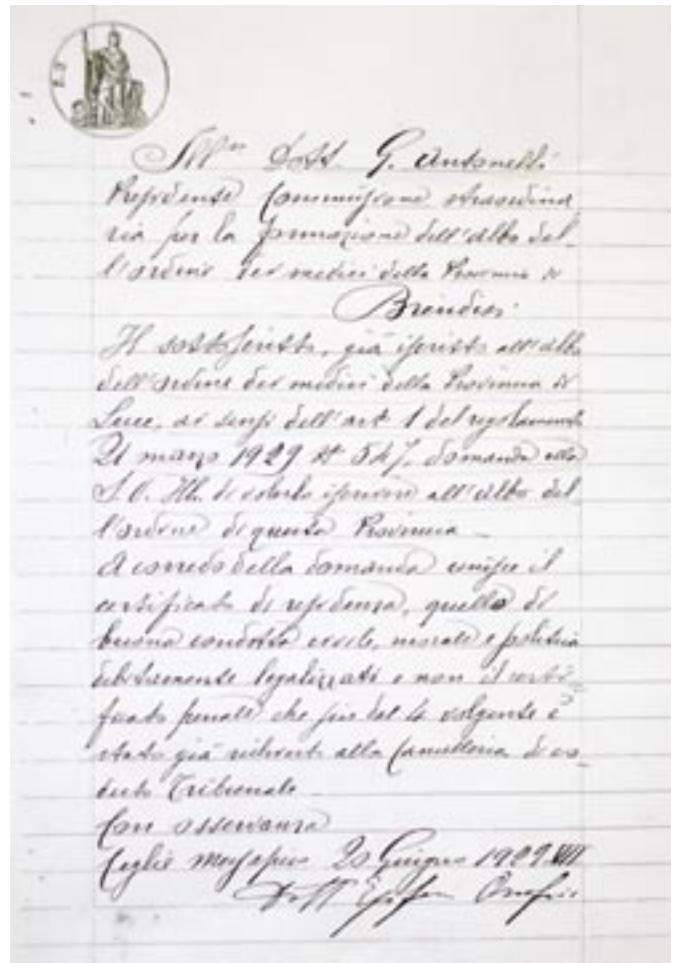 Ill.mo Dott. G. Antonelli
Presidente Commissione straordina
ria per la formazione dell'albo del
l'ordine dei medici della Provincia di
Brindisi
Il sottoscritto, già iscritto all'albo
dell'ordine dei medici della Provincia di
Lecce, ai sensi dell'art 1 del regolamento
21 marzo 1929 N 547, domanda alla
S. V. Ill. di volerlo iscrivere all'albo del
l'ordine di questa Provincia _
A corredo della domanda unisce il
certificato di residenza, quello di
buona condotta civile, morale e politica
debitamente legalizzati e non il certi-
ficato penale che fin dal 4 volgente è
stato già richiesto alla Cancelleria di co-
desto Tribunale
Con osservanza
Ceglie Messapico 20 Giugno 1929 VII
Dott